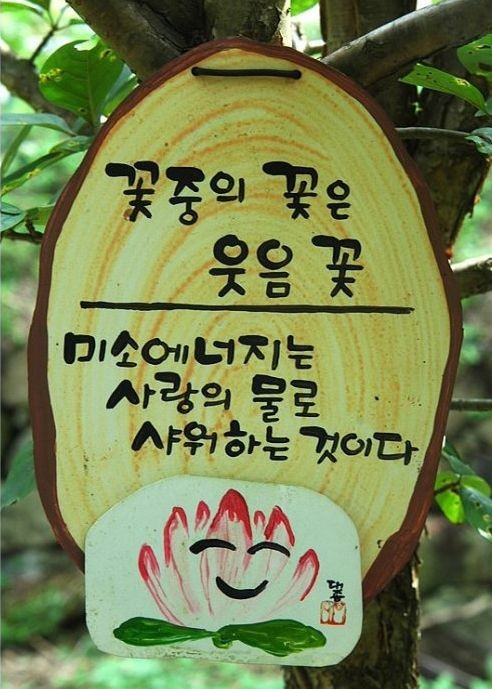 꽃중의 꽃은
웃음 꽃
미소에너지는
사랑의 물로
샤워하는 것이다